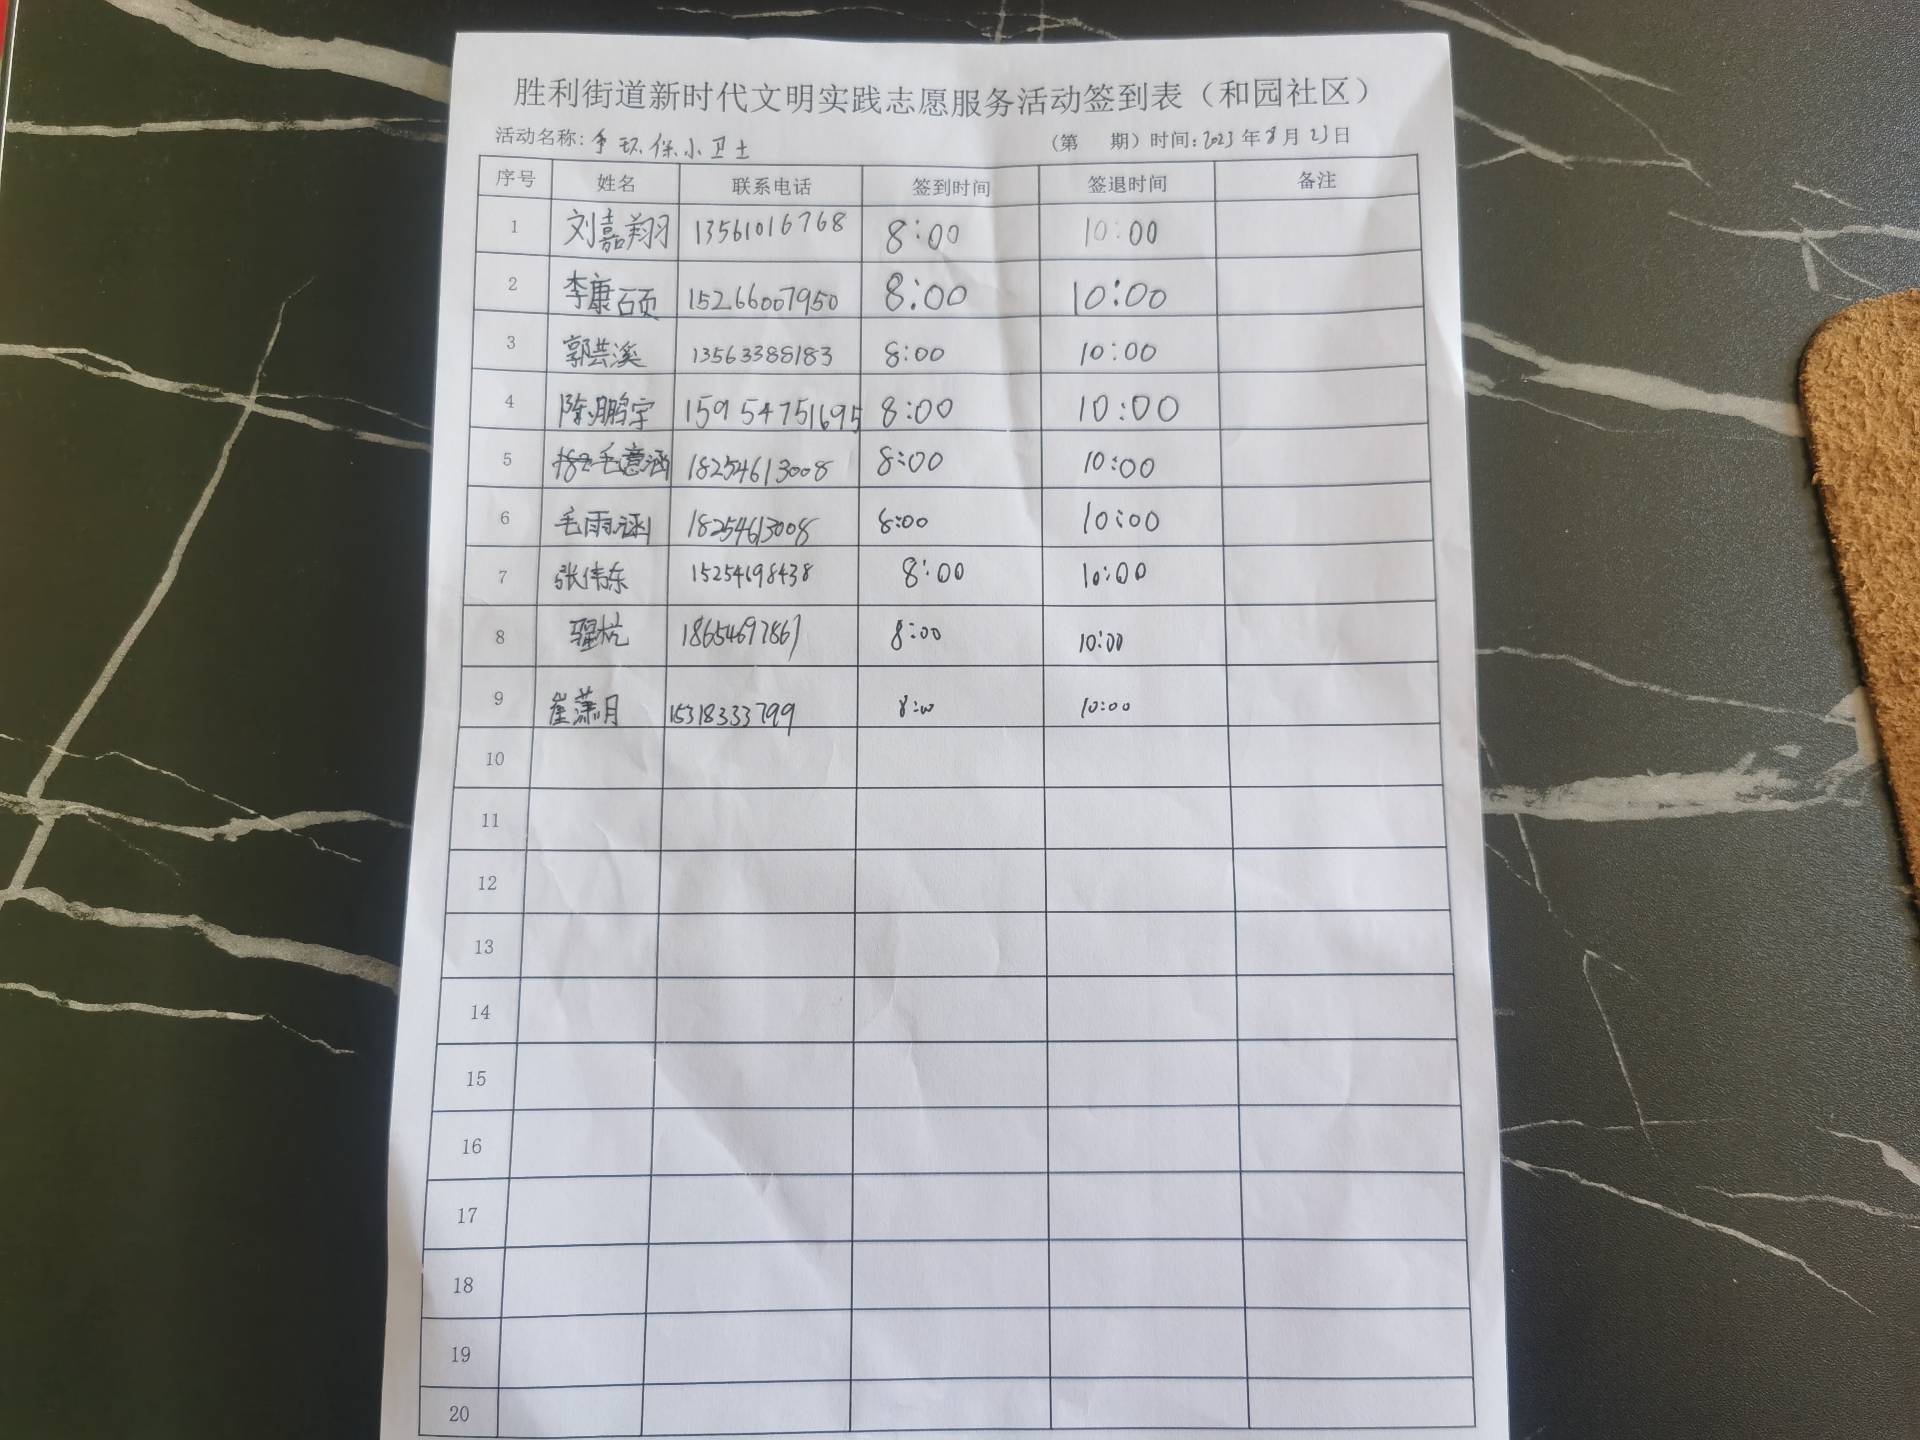 胜利街道新时代文明实践志愿服务活动签到表（和园社区）
活动名称: 争 环保小卫士 （第 期）时间: 2023 年 8 月 23 日
序号 姓名 联系电话 签到时间 签退时间 备注
1 刘嘉翔 13561016768 8:00 10:00
2 李康硕 15266007950 8:00 10:00
3 郭芸溪 13563388183 8:00 10:00
4 陈鹏宇 15954751695 8:00 10:00
5 毛意涵 18254613008 8:00 10:00
6 毛雨涵 18254613008 8:00 10:00
7 张伟东 15254698438 8:00 10:00
8 18654697867 8:00 10:00
9 崔潇月 15318333799 8:00 10:00
10
11
12
13
14
15
16
17
18
19
20